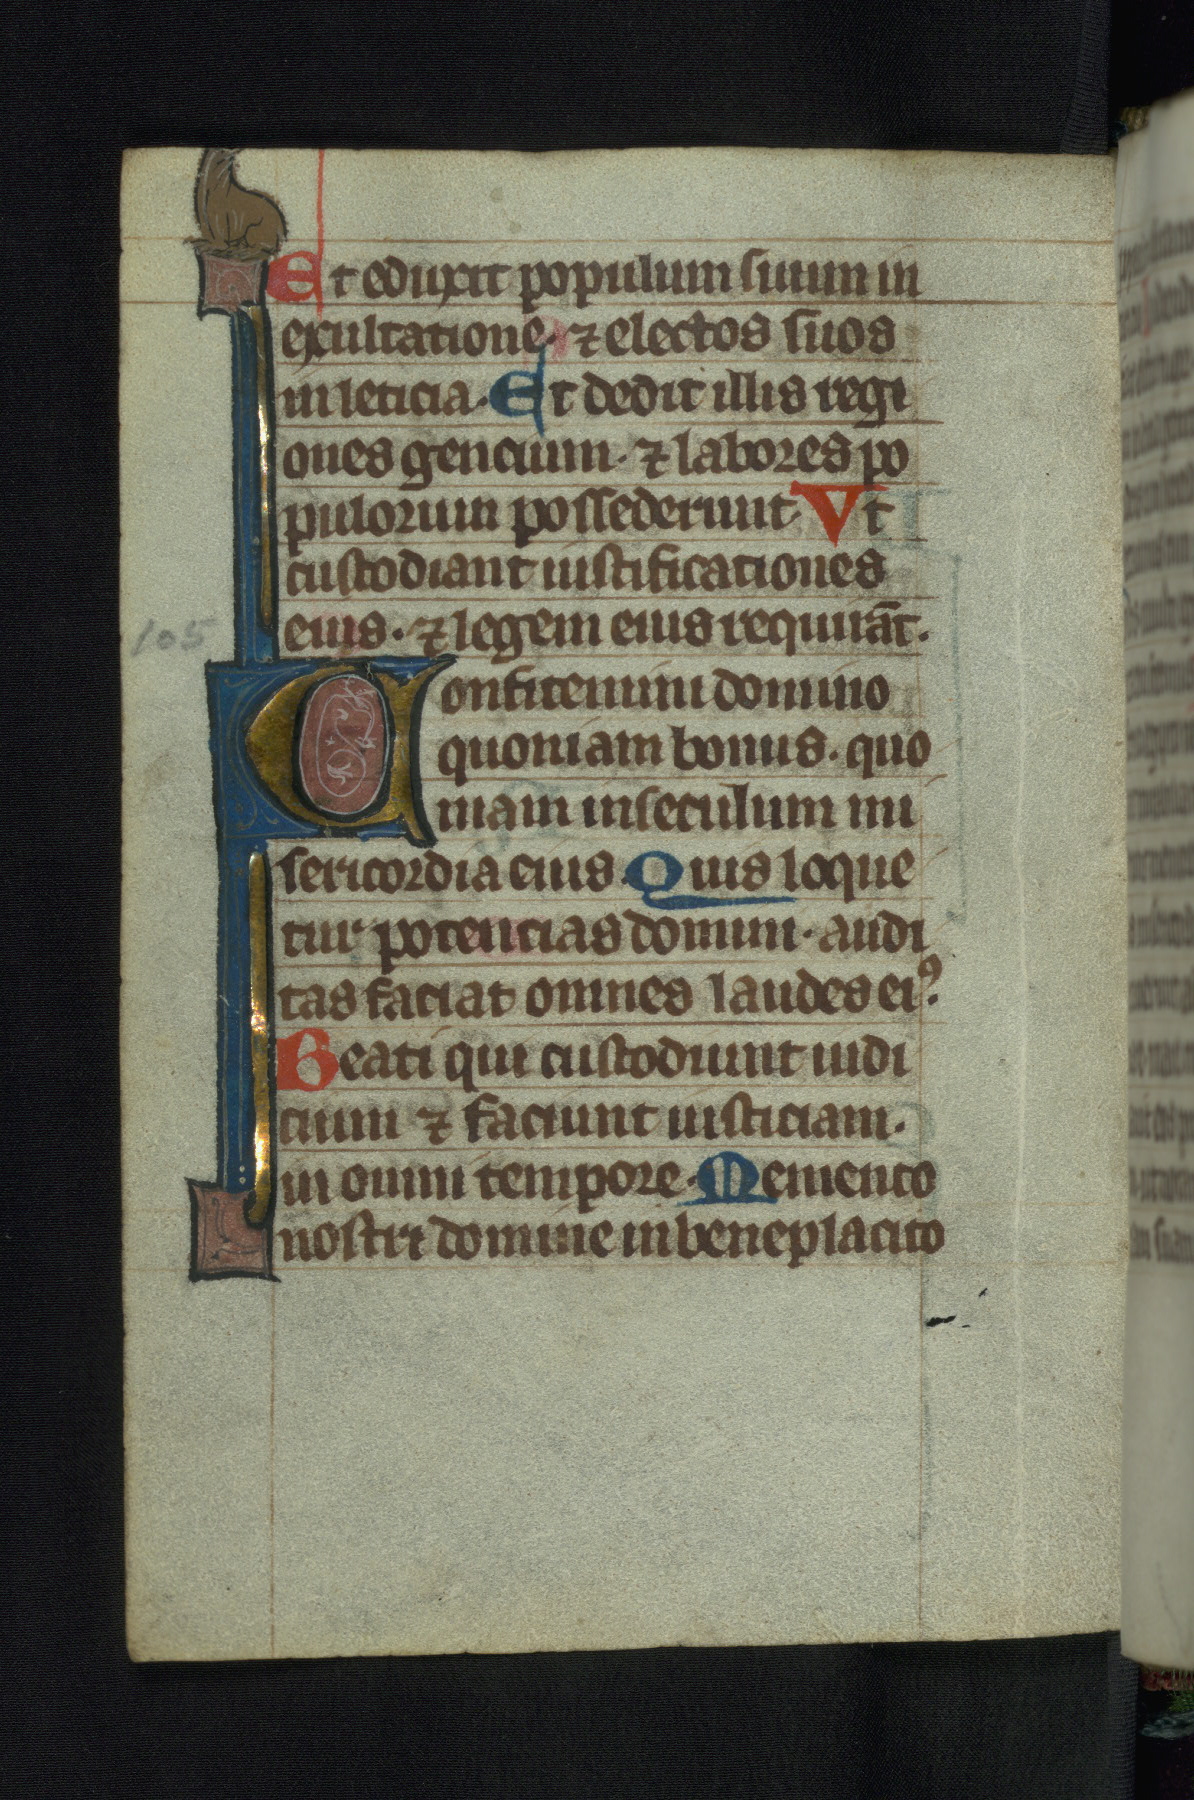 Et eduxit populum suum in
exultatione. ⁊ electos suos
in leticia. Et dedit illis regi
ones gencium. ⁊ labores po
pulorum possederunt. Vt
custodiant iustificationes
eius. ⁊ legem eius requirāt.
105
Confitemini domino
quoniam bonus. quo
niam in seculum mi
sericordia eius. Quis loque
tur potencias domini. audi
tas faciat omnes laudes eiꝰ.
Beati qui custodiunt iudi
cium ⁊ faciunt iusticiam.
in omni tempore. Memento
nostri domine in beneplacito